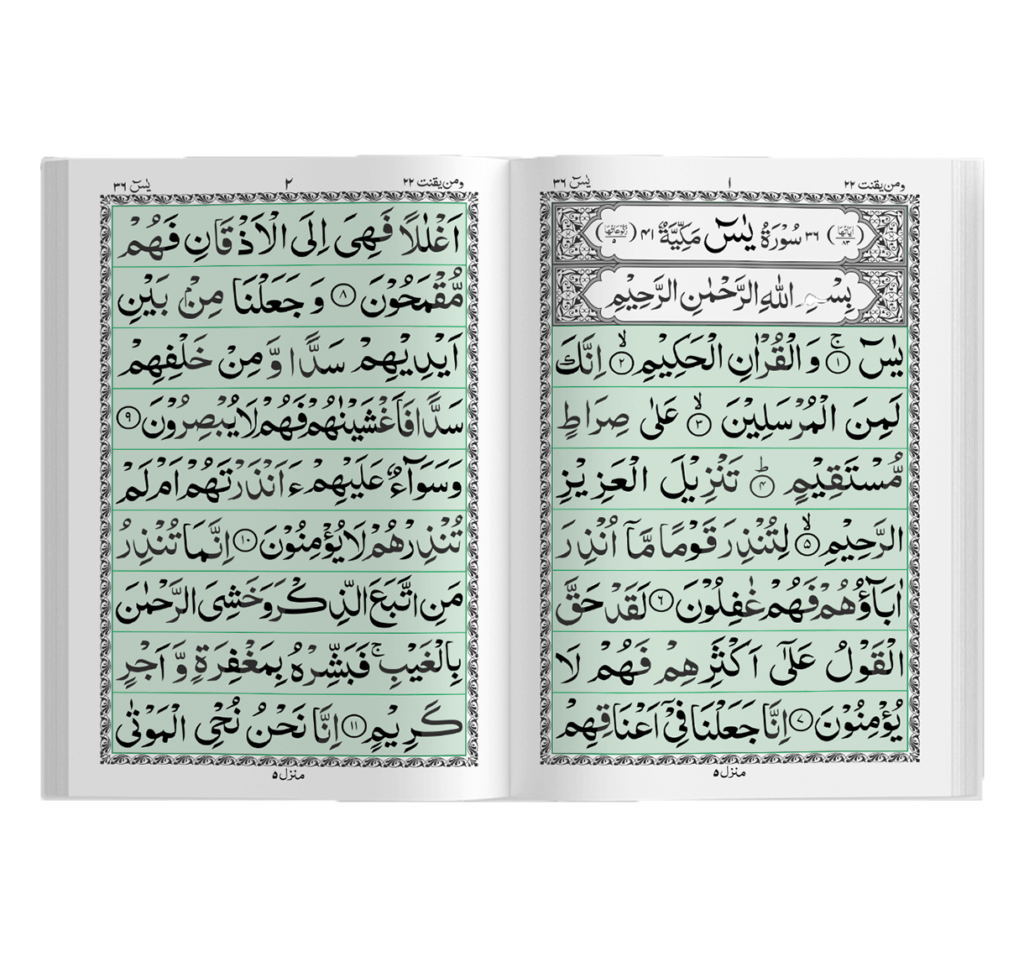 یٰسٓ ٣٦ ١ ومن یقنت ٢٢
(اٰیَاتُهَا ٨٣) ٣٦ سُوْرَةُ یٰسٓ مَكِّیَّةٌ ٤١ (رُكُوْعَاتُهَا ٥)
بِسْمِ اللّٰهِ الرَّحْمٰنِ الرَّحِیْمِ
یٰسٓ ۚ﴿١﴾ وَ الْقُرْاٰنِ الْحَكِیْمِ ۙ﴿٢﴾ اِنَّكَ
لَمِنَ الْمُرْسَلِیْنَ ۙ﴿٣﴾ عَلٰی صِرَاطٍ
مُّسْتَقِیْمٍ ؕ﴿٤﴾ تَنْزِیْلَ الْعَزِیْزِ
الرَّحِیْمِ ۙ﴿٥﴾ لِتُنْذِرَ قَوْمًا مَّاۤ اُنْذِرَ
اٰبَآؤُهُمْ فَهُمْ غٰفِلُوْنَ ﴿٦﴾ لَقَدْ حَقَّ
الْقَوْلُ عَلٰۤی اَكْثَرِهِمْ فَهُمْ لَا
یُؤْمِنُوْنَ ﴿٧﴾ اِنَّا جَعَلْنَا فِیْۤ اَعْنَاقِهِمْ
منزل ٥
یٰسٓ ٣٦ ٢ ومن یقنت ٢٢
اَغْلٰلًا فَهِیَ اِلَی الْاَذْقَانِ فَهُمْ
مُّقْمَحُوْنَ ﴿٨﴾ وَ جَعَلْنَا مِنْۢ بَیْنِ
اَیْدِیْهِمْ سَدًّا وَّ مِنْ خَلْفِهِمْ
سَدًّا فَاَغْشَیْنٰهُمْ فَهُمْ لَا یُبْصِرُوْنَ ﴿٩﴾
وَسَوَآءٌ عَلَیْهِمْ ءَاَنْذَرْتَهُمْ اَمْ لَمْ
تُنْذِرْهُمْ لَا یُؤْمِنُوْنَ ﴿١٠﴾ اِنَّمَا تُنْذِرُ
مَنِ اتَّبَعَ الذِّكْرَ وَخَشِیَ الرَّحْمٰنَ
بِالْغَیْبِ ۚ فَبَشِّرْهُ بِمَغْفِرَةٍ وَّ اَجْرٍ
كَرِیْمٍ ﴿١١﴾ اِنَّا نَحْنُ نُحْیِ الْمَوْتٰی
منزل ٥